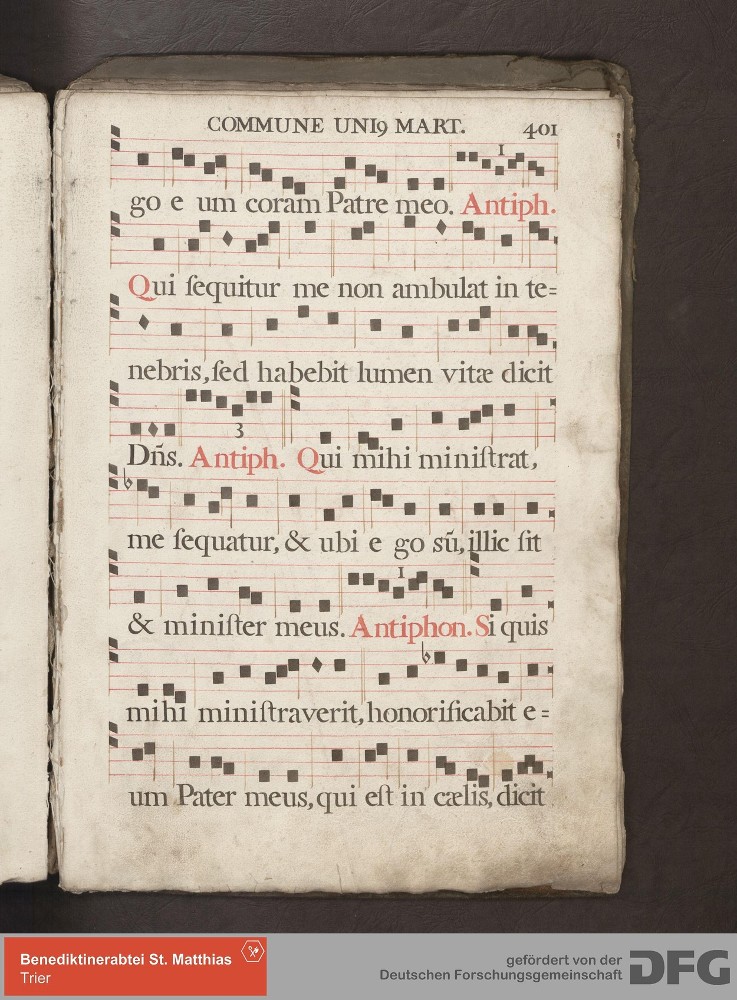 COMMUNE UNI9 MART. 401
1
go e um coram Patre meo. Antiph.
Qui ſequitur me non ambulat in te=
nebris, ſed habebit lumen vitæ dicit
3
Dn̄s. Antiph. Qui mihi miniſtrat,
me ſequatur, & ubi e go sū, illic ſit
1
& miniſter meus. Antiphon. Si quis
mihi miniſtraverit, honorificabit e=
um Pater meus, qui eſt in cælis, dicit
Benediktinerabtei St. Matthias
Trier
gefördert von der
Deutschen Forschungsgemeinschaft
DFG